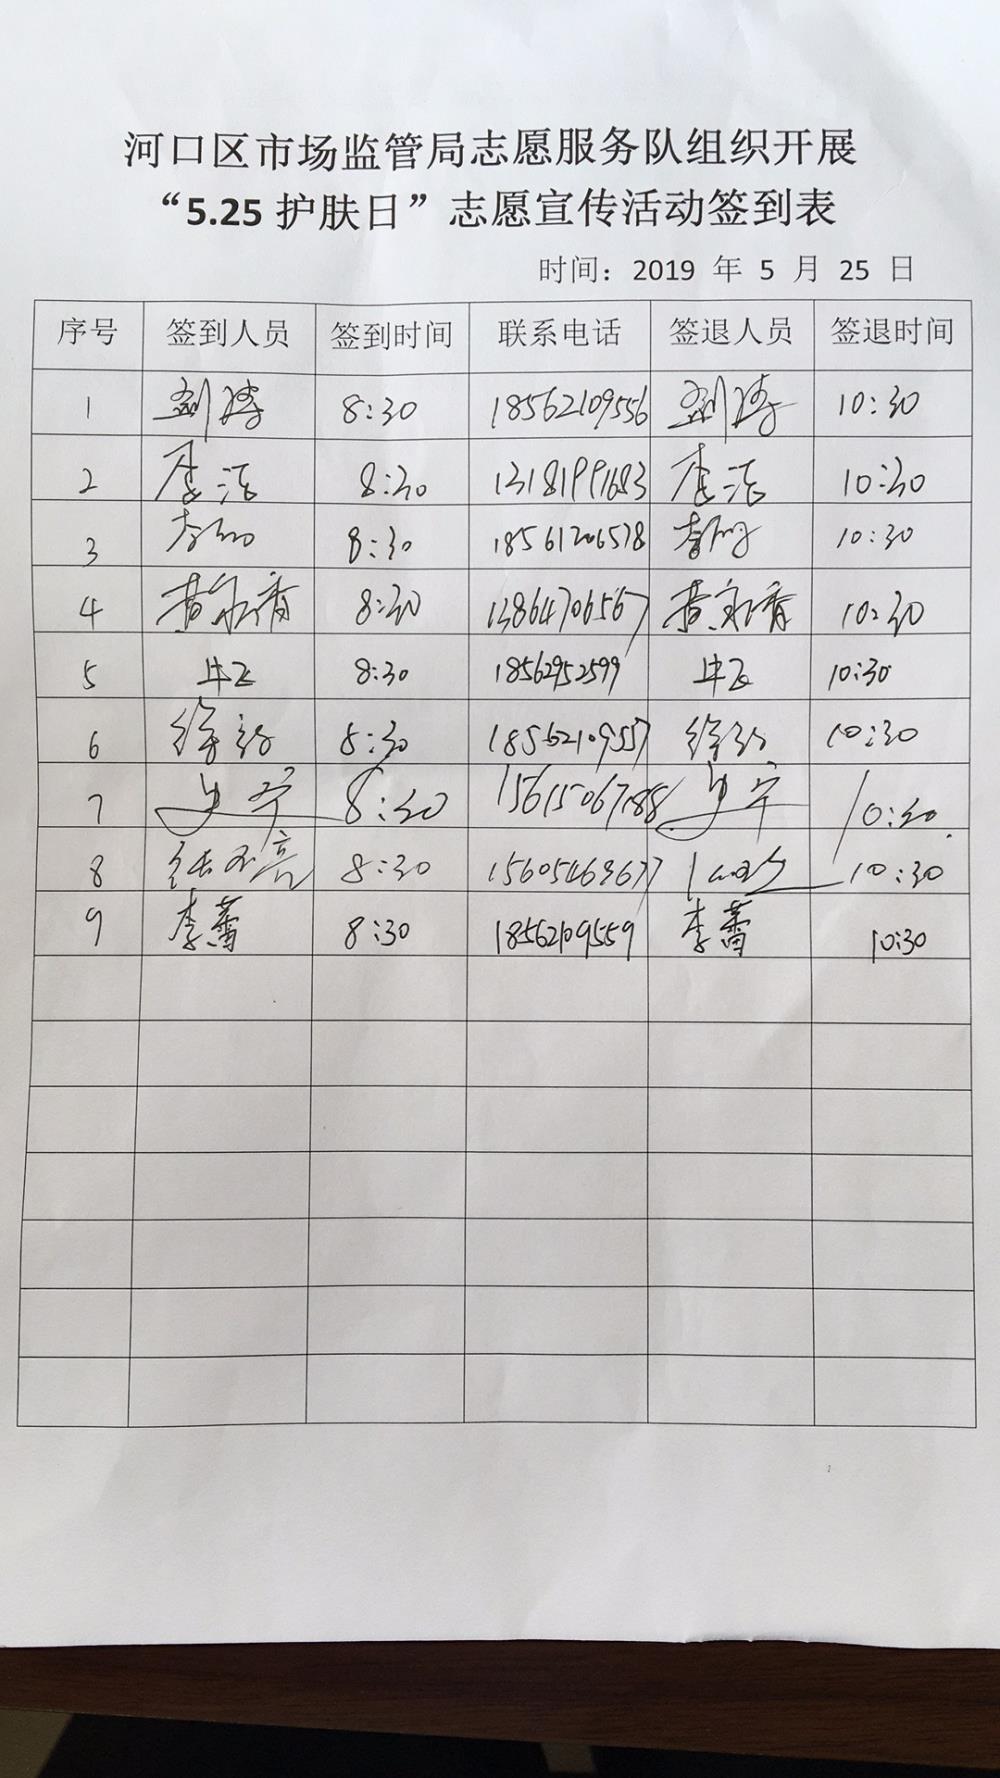 河口区市场监管局志愿服务队组织开展
“5.25护肤日”志愿宣传活动签到表
时间：2019 年 5 月 25 日
序号 签到人员 签到时间 联系电话 签退人员 签退时间
1 刘涛 8:30 18562109556 刘涛 10:30
2 李洁 8:30 13181991683 李洁 10:30
3 8:30 18561206578 10:30
4 黄永青 8:30 13864706567 黄永青 10:30
5 牛飞 8:30 18562952599 牛飞 10:30
6 徐 8:30 18562109557 徐 10:30
7 8:30 15615067188 10:30
8 张 亮 8:30 15605463677 10:30
9 李蕾 8:30 18562109559 李蕾 10:30